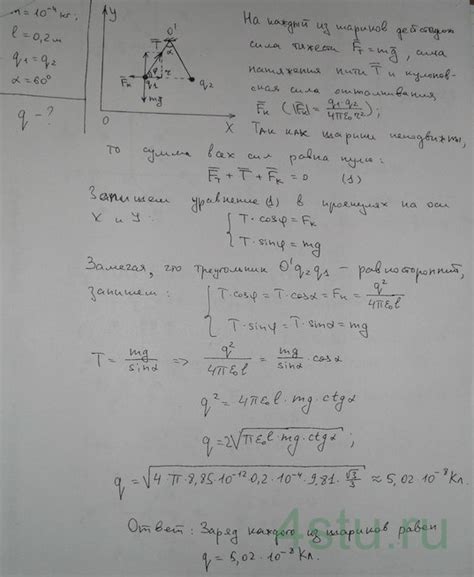 m = 10⁻⁴ кг.
l = 0,2 м
q₁ = q₂
α = 60°
q - ?
Y
O'
T̅
α
F̅к
φ
q₁
q₂
mg̅
O
X
На каждый из шариков действуют
сила тяжести F̅т = mg̅, сила
натяжения нити T̅ и кулонов-
ская сила отталкивания
F̅к (|F̅к| = q₁q₂ / 4πε₀r²);
Так как шарики неподвижны,
то сумма всех сил равна нулю:
F̅т + T̅ + F̅к = 0 (1)
Запишем уравнение (1) в проекциях на оси
X и У: { T·cosφ = Fк
T·sinφ = mg
Замечая, что треугольник O'q₂q₁ - равносторонний,
запишем: { T·cosφ = T·cosα = Fк = q² / 4πε₀l
T·sinφ = T·sinα = mg
T = mg / sinα => q² / 4πε₀l = mg / sinα · cosα
q² = 4πε₀l·mg·ctgα
q = 2√(πε₀l·mg·ctgα);
q = √(4·π·8,85·10⁻¹²·0,2·10⁻⁴·9,81·√3/3) ≈ 5,02·10⁻⁸ Кл.
Ответ: Заряд каждого из шариков равен
q = 5,02·10⁻⁸ Кл.
4stu.ru